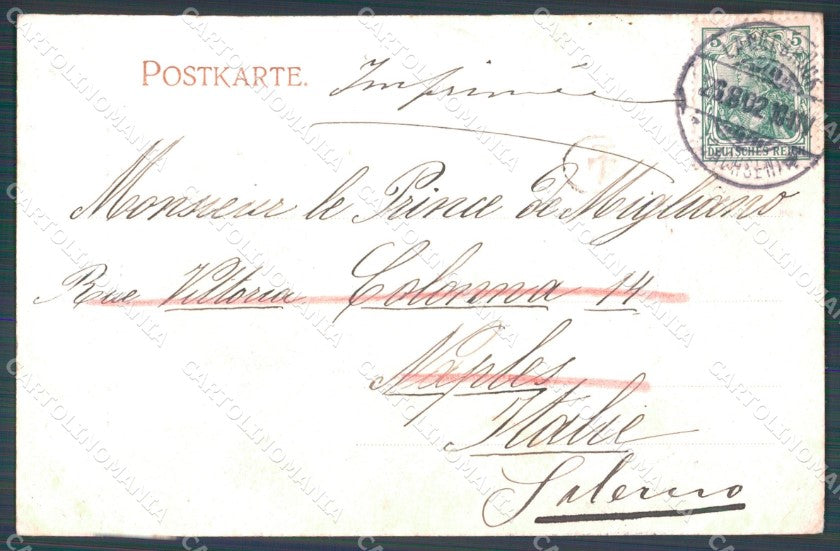 POSTKARTE. Imprimée
5 5
DEUTSCHES REICH
26.8.02
Monsieur le Prince de Migliano
Rue Vittoria Colonna 14
Naples
Italie
Salerno
CARTOLINOMANIA